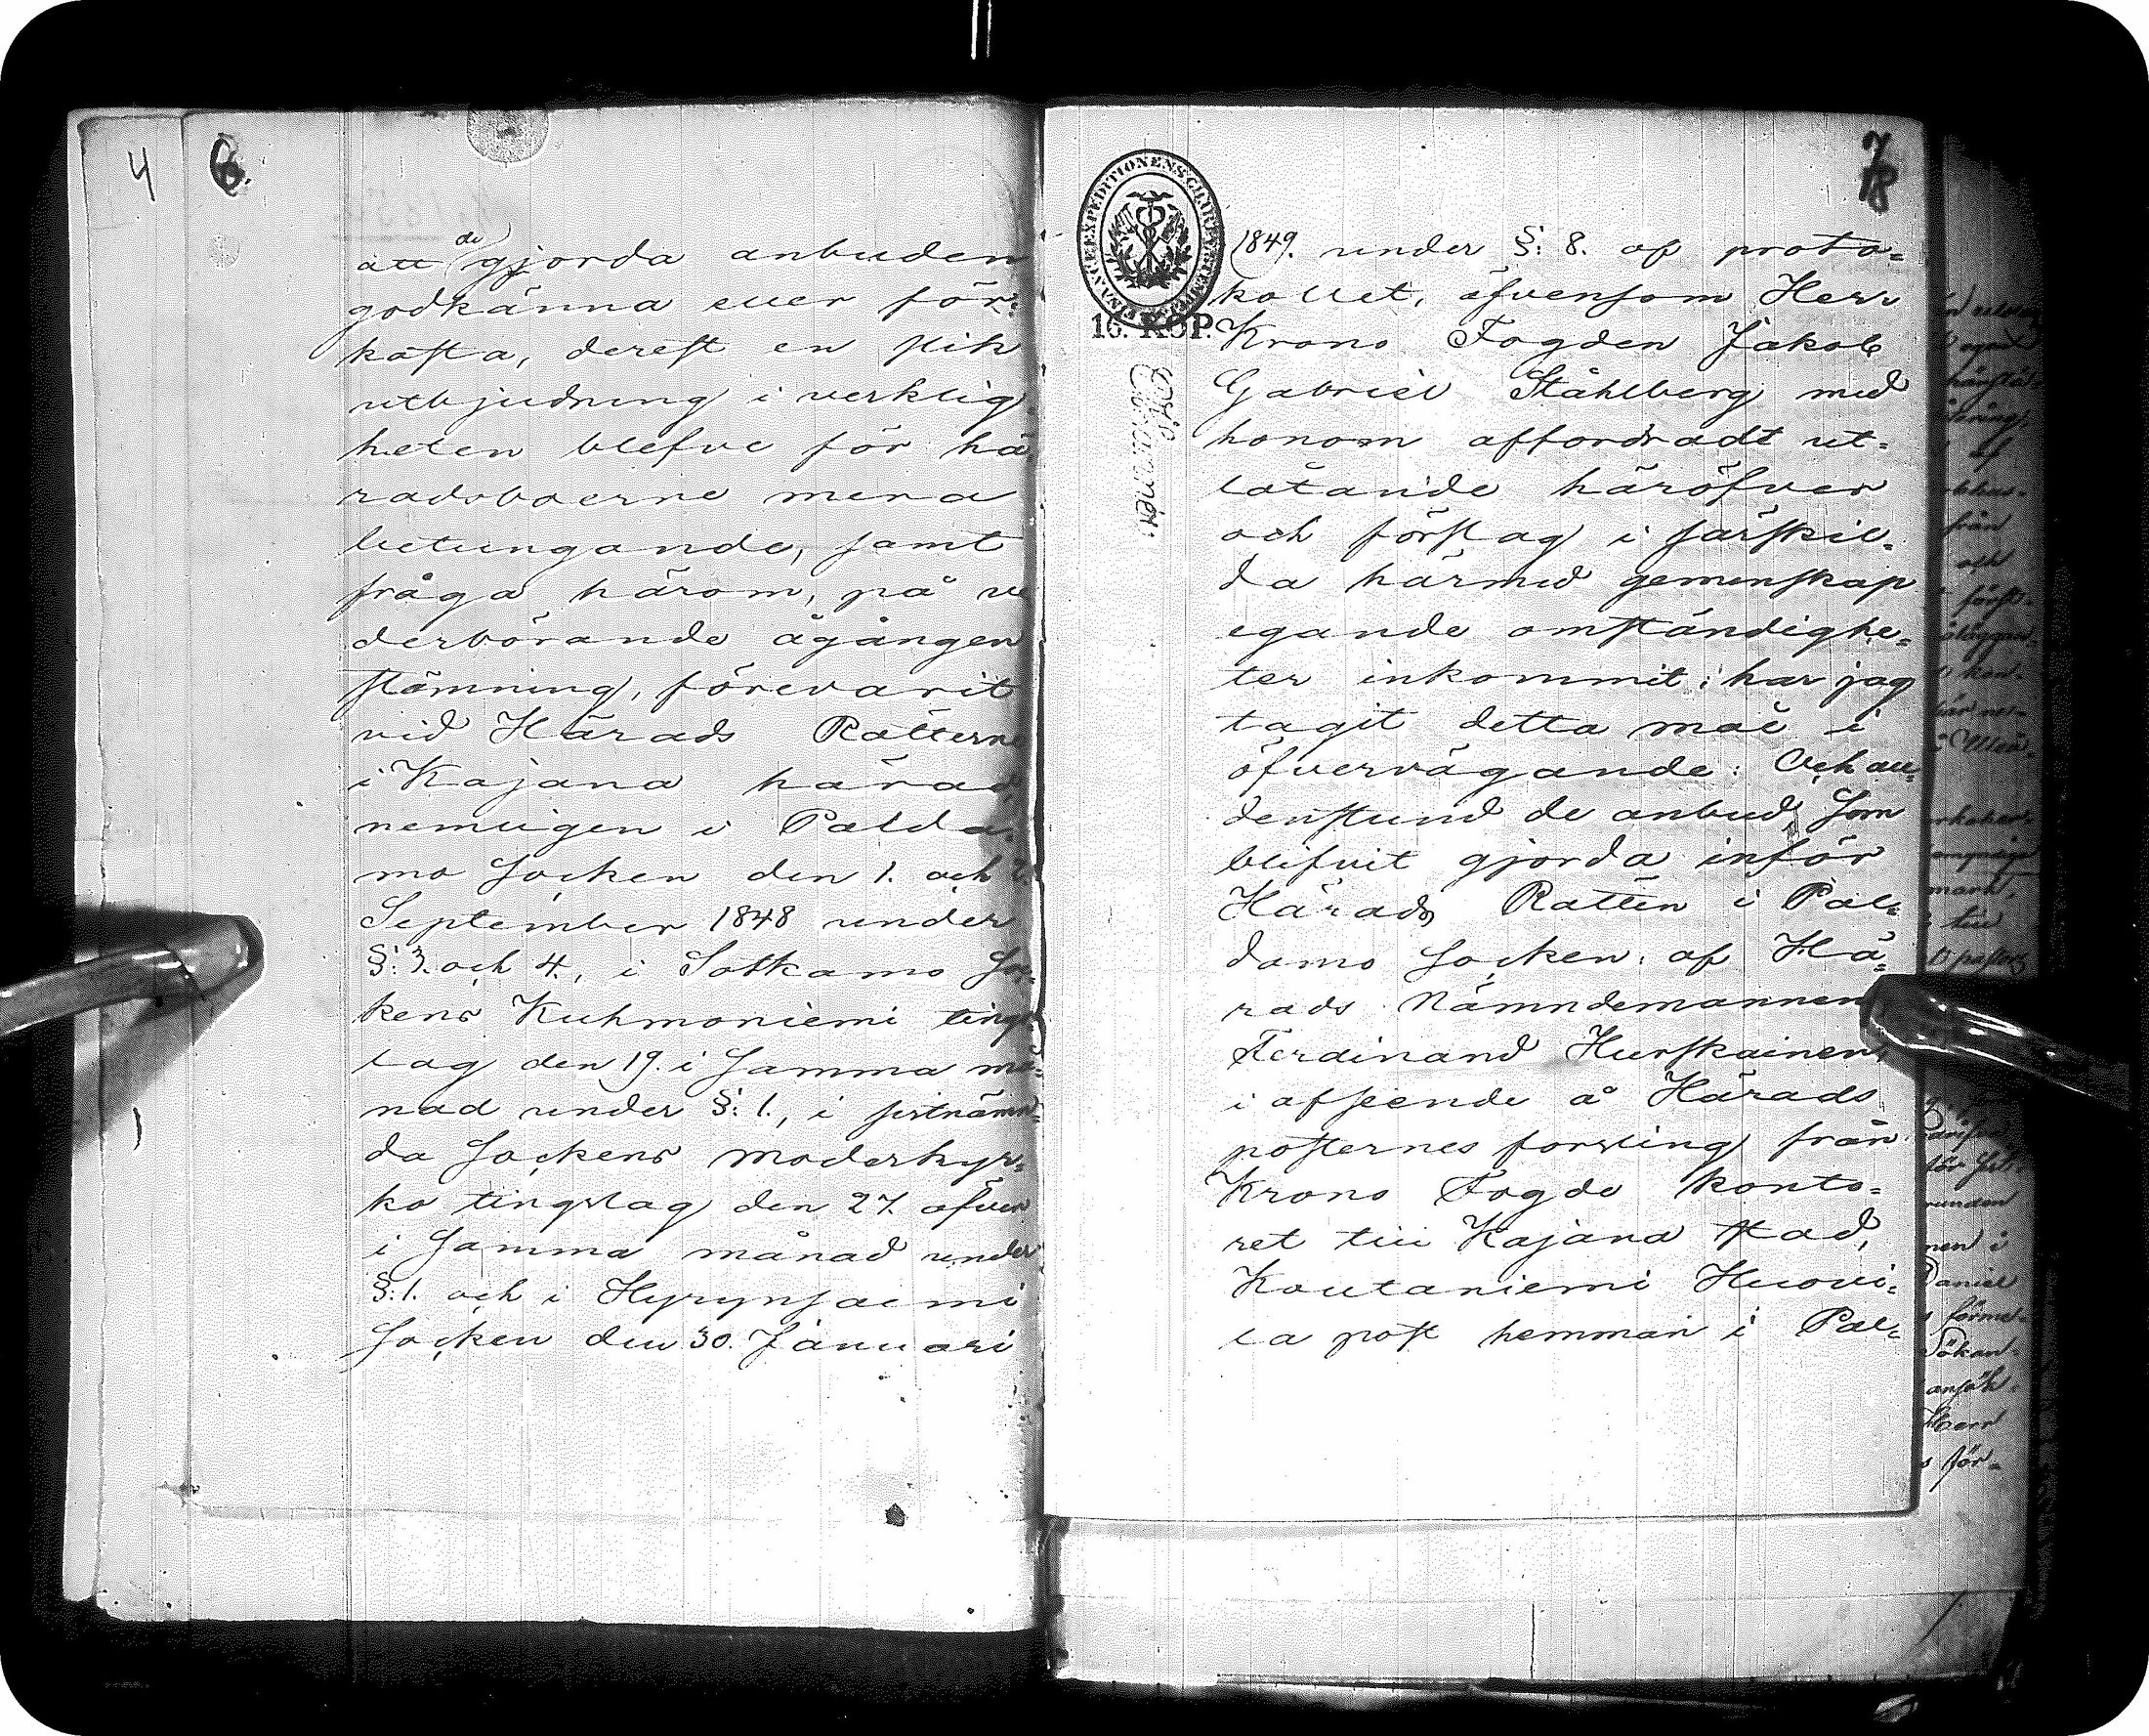 4 6.
de
att gjorda anbuden
godkänna eller för=
kasta, derest en slik
utbjudning i verklig=
heten blefve för hä
radsboerne mera
betungande, samt
fråga härom, på ve
derbörande ågången
stämning, förevarit
vid Härads Rätterne
i Kajana härad
nemligen i Palda=
mo Socken den 1. och 2.
September 1848 under
§: 3. och 4., i Sotkamo So=
kens Kuhmoniemi tings
lag den 19. i samma må=
nad under §: 1., i sistnämn=
da Sockens moderkyr=
ko tingslag den 27. äfven
i samma månad under
§: 1. och i Hyrynsalmi
Socken den 30. Januari
7
18
16. KOP.
1849. under §: 8. af proto=
kollet, äfvensom Herr
Krono Fogden Jakob
Gabriel Ståhlberg med
honom affordradt ut=
låtande häröfver
och förslag i särskil=
da härmed gemenskap
egande omständighe=
ter inkommit; har jag
tagit detta mål i
öfvervägande: Och all=
denstund de anbud, som
blifvit gjorda inför
Härads Rätten i Pal=
damo Socken: af Hä=
rads Nämndemannen
Ferdinand Hurskainen,
i afseende å Härads
posternes forsling från
Krono Fogde konto=
ret till Kajana stad,
Koutaniemi Huovi=
la post hemman i Pal=